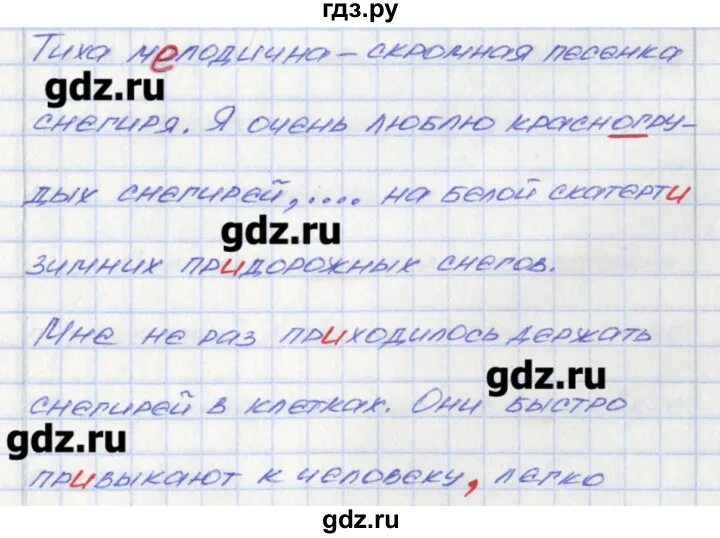 гдз.ру
Тиха мелодична - скромная песенка
gdz.ru
снегиря. Я очень люблю красногру-
дых снегирей, .... на белой скатерти
gdz.ru
зимних придорожных снегов.
Мне не раз приходилось держать
gdz.ru
снегирей в клетках. Они быстро
gdz.ru
привыкают к человеку, легко
gdz.ru